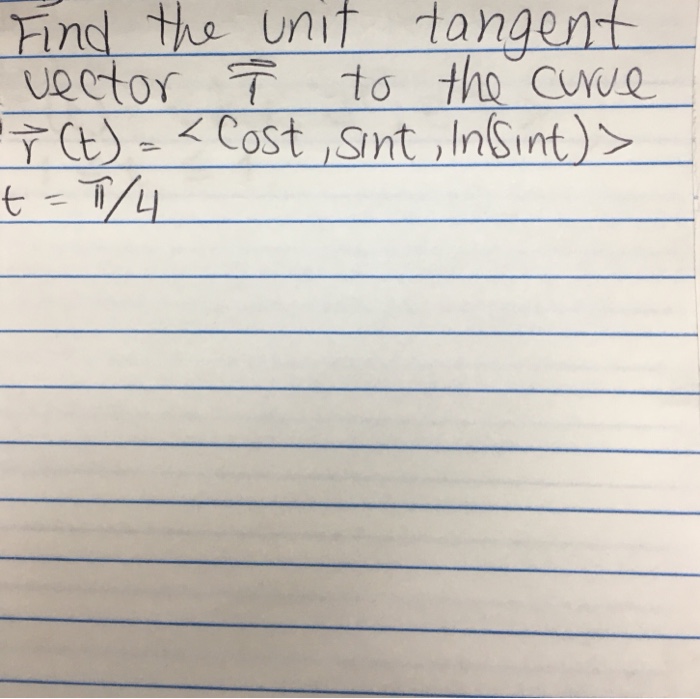 Find the unit tangent
vector T⃗ to the curve
r⃗(t) = <Cost, Sint, ln(Sint)>
t = π/4